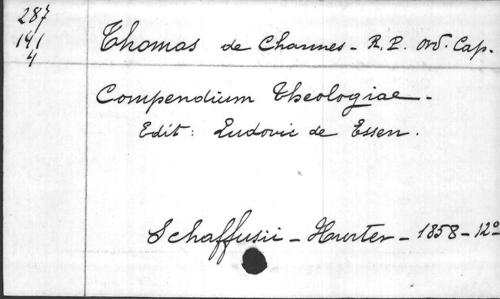 287
141
4
Thomas de Charmes - R. P. ord. Cap.
Compendium Theologiae -
Edit: Ludovic de Essen.
Schaffusii - Hurter - 1858 - 12º